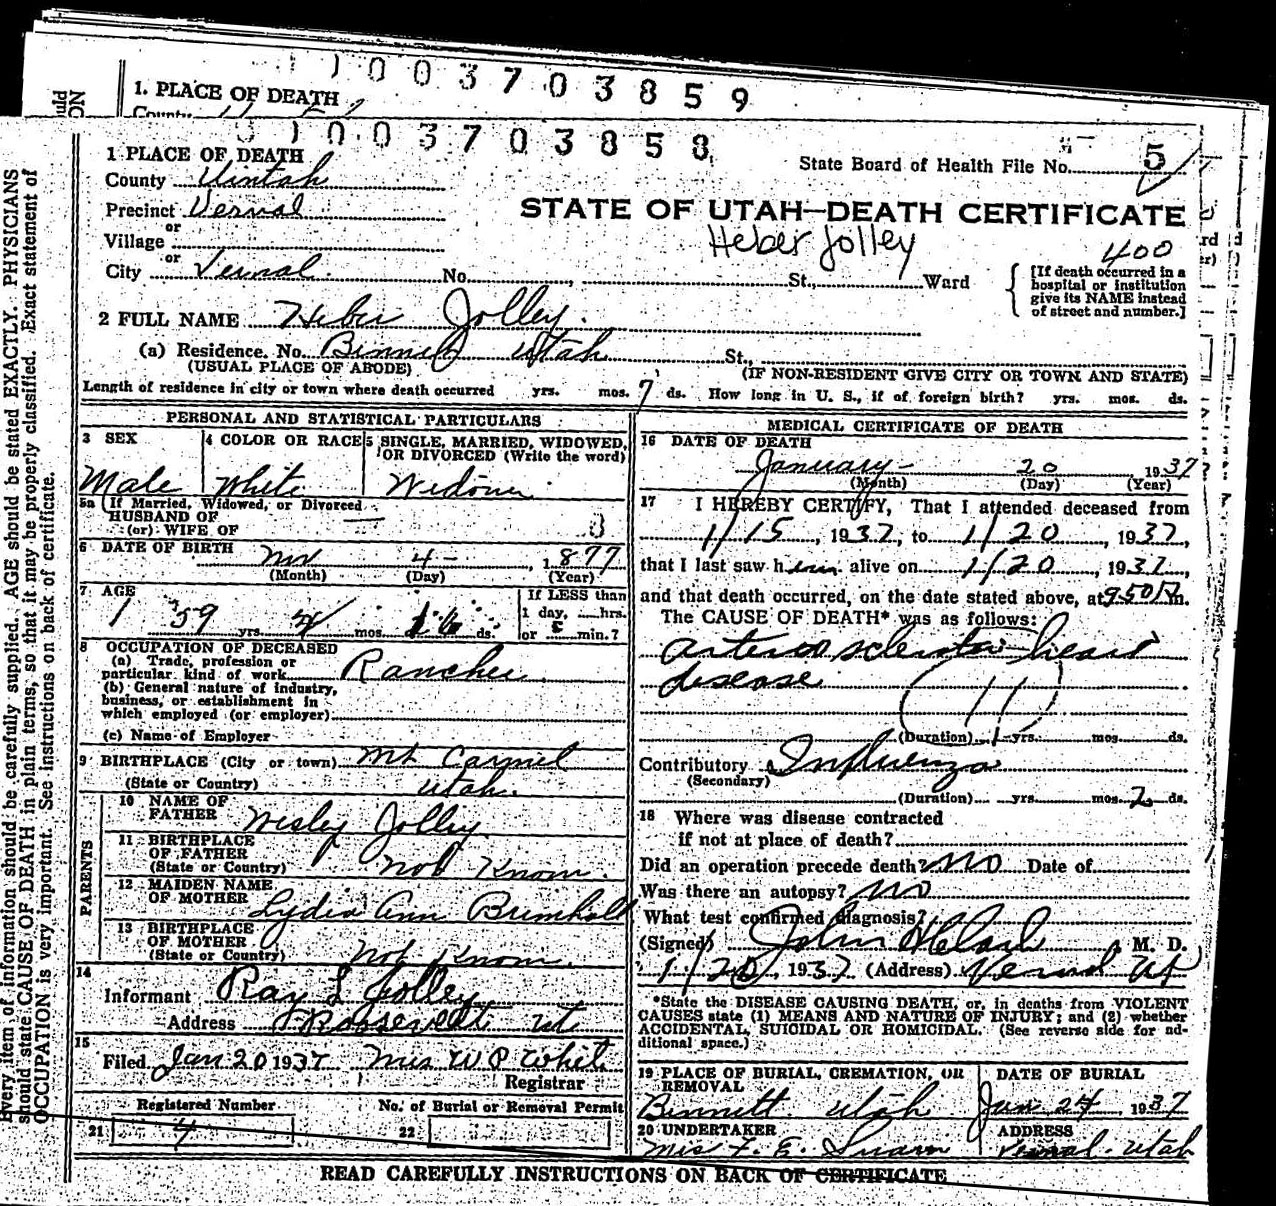 1 0 0 3 7 0 3 8 5 9
1. PLACE OF DEATH
County
1 0 0 3 7 0 3 8 5 8
1 PLACE OF DEATH
County Uintah
Precinct Vernal
or
Village
or
City Vernal No. St., Ward
State Board of Health File No. 5
STATE OF UTAH—DEATH CERTIFICATE
Heber Jolley
400
[If death occurred in a
hospital or institution
give its NAME instead
of street and number.]
2 FULL NAME Heber Jolley
(a) Residence. No. Bennett Utah St.,
(USUAL PLACE OF ABODE) (IF NON-RESIDENT GIVE CITY OR TOWN AND STATE)
Length of residence in city or town where death occurred yrs. mos. 7 ds. How long in U. S., if of foreign birth? yrs. mos. ds.
PERSONAL AND STATISTICAL PARTICULARS
3 SEX 4 COLOR OR RACE 5 SINGLE, MARRIED, WIDOWED,
OR DIVORCED (Write the word)
Male White Widower
5a If Married, Widowed, or Divorced
HUSBAND OF
(or) WIFE OF
6 DATE OF BIRTH 4 1877
(Month) (Day) (Year)
7 AGE If LESS than
1 day, hrs.
59 yrs. mos. 16 ds. or min.?
8 OCCUPATION OF DECEASED
(a) Trade, profession or
particular kind of work Rancher
(b) General nature of industry,
business, or establishment in
which employed (or employer)
(c) Name of Employer
9 BIRTHPLACE (City or town) Mt Carmel
(State or Country) Utah.
PARENTS
10 NAME OF
FATHER Wesley Jolley
11 BIRTHPLACE
OF FATHER
(State or Country) Not Known.
12 MAIDEN NAME
OF MOTHER Lydia Ann Brimhall
13 BIRTHPLACE
OF MOTHER
(State or Country) Not Known.
14
Informant Ray L Jolley
Address Roosevelt Ut
15
Filed Jan 20 1937 Mrs W P White
Registrar
Registered Number No. of Burial or Removal Permit
21 4 22
MEDICAL CERTIFICATE OF DEATH
16 DATE OF DEATH
January 20 1937
(Month) (Day) (Year)
17 I HEREBY CERTIFY, That I attended deceased from
1/15, 1937, to 1/20, 1937,
that I last saw him alive on 1/20, 1937,
and that death occurred, on the date stated above, at 9 50 P m.
The CAUSE OF DEATH* was as follows:
arteriosclerotic heart
disease
11
(Duration) 1 yrs. mos. ds.
Contributory Influenza
(Secondary)
(Duration) yrs. mos. 2 ds.
18 Where was disease contracted
if not at place of death?
Did an operation precede death? no Date of
Was there an autopsy? no
What test confirmed diagnosis?
(Signed) John M. D.
1/20, 1937 (Address) Vernal Ut
*State the DISEASE CAUSING DEATH, or, in deaths from VIOLENT
CAUSES state (1) MEANS AND NATURE OF INJURY; and (2) whether
ACCIDENTAL, SUICIDAL OR HOMICIDAL. (See reverse side for ad-
ditional space.)
19 PLACE OF BURIAL, CREMATION, OR
REMOVAL DATE OF BURIAL
Bennett Utah Jan 24 1937
20 UNDERTAKER ADDRESS
Mrs F. E. Swain Vernal. Utah
READ CAREFULLY INSTRUCTIONS ON BACK OF CERTIFICATE
Every item of information should be carefully supplied. AGE should be stated EXACTLY. PHYSICIANS
should state CAUSE OF DEATH in plain terms, so that it may be properly classified. Exact statement of
OCCUPATION is very important. See instructions on back of certificate.